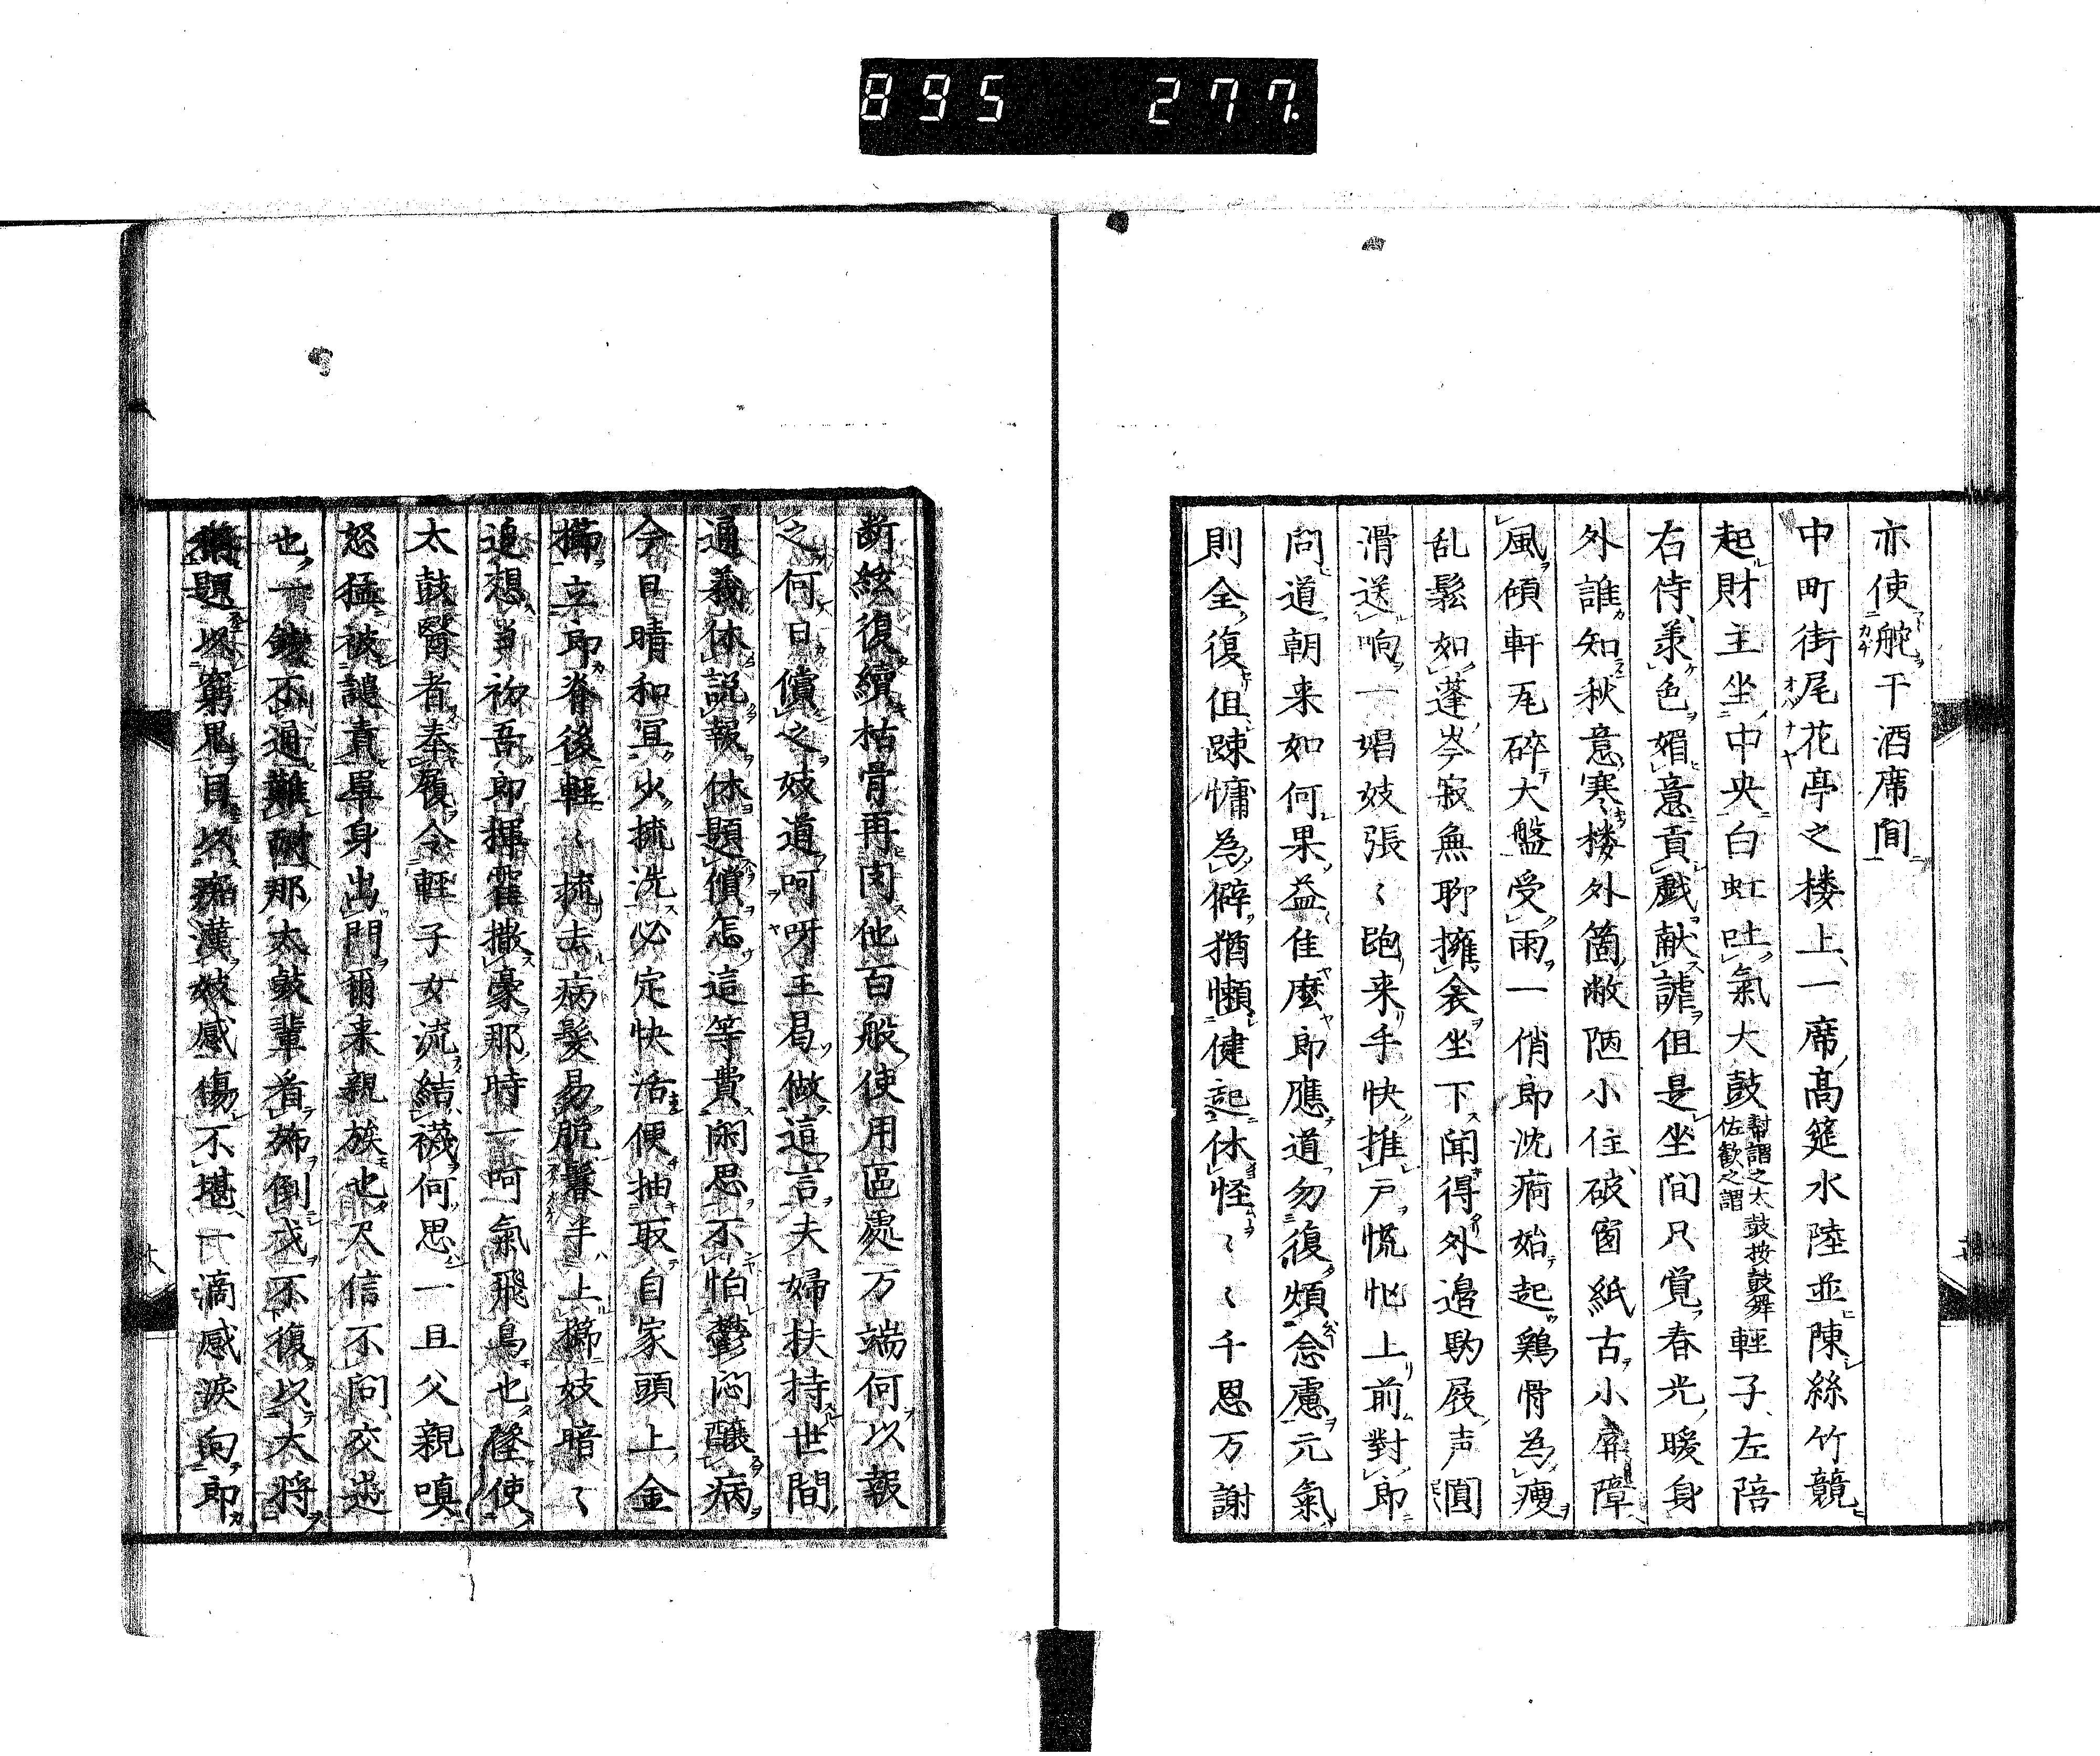 895 277.
亦使舵干酒席間
中町街尾花亭之楼上一席高筵水陸並陳絲竹競
起財主坐中央白虹吐氣大鼓幇謂之太鼓按鼓舞佐歓之謂軽子左陪
右侍羕色媚意貢戯献謔但是坐間只覚春光暖身
外誰知秋意寒〻楼外箇敝陋小住破窗紙古小屏障
風傾軒瓦碎大盤受雨一俏郎沈痾始起鶏骨為痩
乱鬆如蓬岑寂無聊擁衾坐下聞得外邊跔屐声圓
滑送响一娼妓張〻跑来手快推戸慌忙上前對郎
問道朝来如何果益佳麼郎應道勿復煩念慮元氣
則全復但踈慵為癖猶懶健起休怪〻〻千恩万謝
断絃復續枯骨再肉他百般使用區處万端何以報
之何日償之妓道呵呀主曷做這言夫婦扶持世間
通義休説報休題償怎這等費閑思不怕鬱悶釀病
今日晴和宜火梳洗必定快活便抽取自家頭上金
櫛立郎脊後軽〻梳去病髪易脱鬈半上櫛妓暗〻
追想当初吾郎揮霍撒豪那時一呵氣飛鳥也墜使
太鼓醫者奉履令軽子女流結襪何思一旦父親嗔
怒猛被譴責単身出門爾来親族也尺信不問交遊
也一錢不通難耐那太鼓輩着㫍倒戈不復以大将
稱題以窮鬼目以痴漢妓感傷不堪一滴感涙向郎